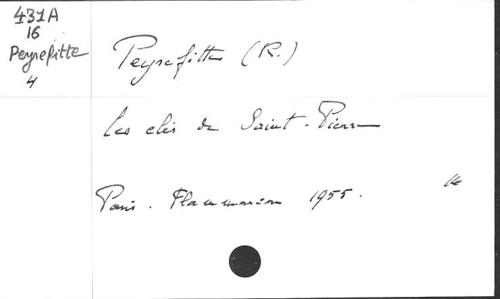 431A
16
Peyrefitte
4
Peyrefitte (R.)
Les clés de Saint-Pierre
Paris. Flammarion 1955.